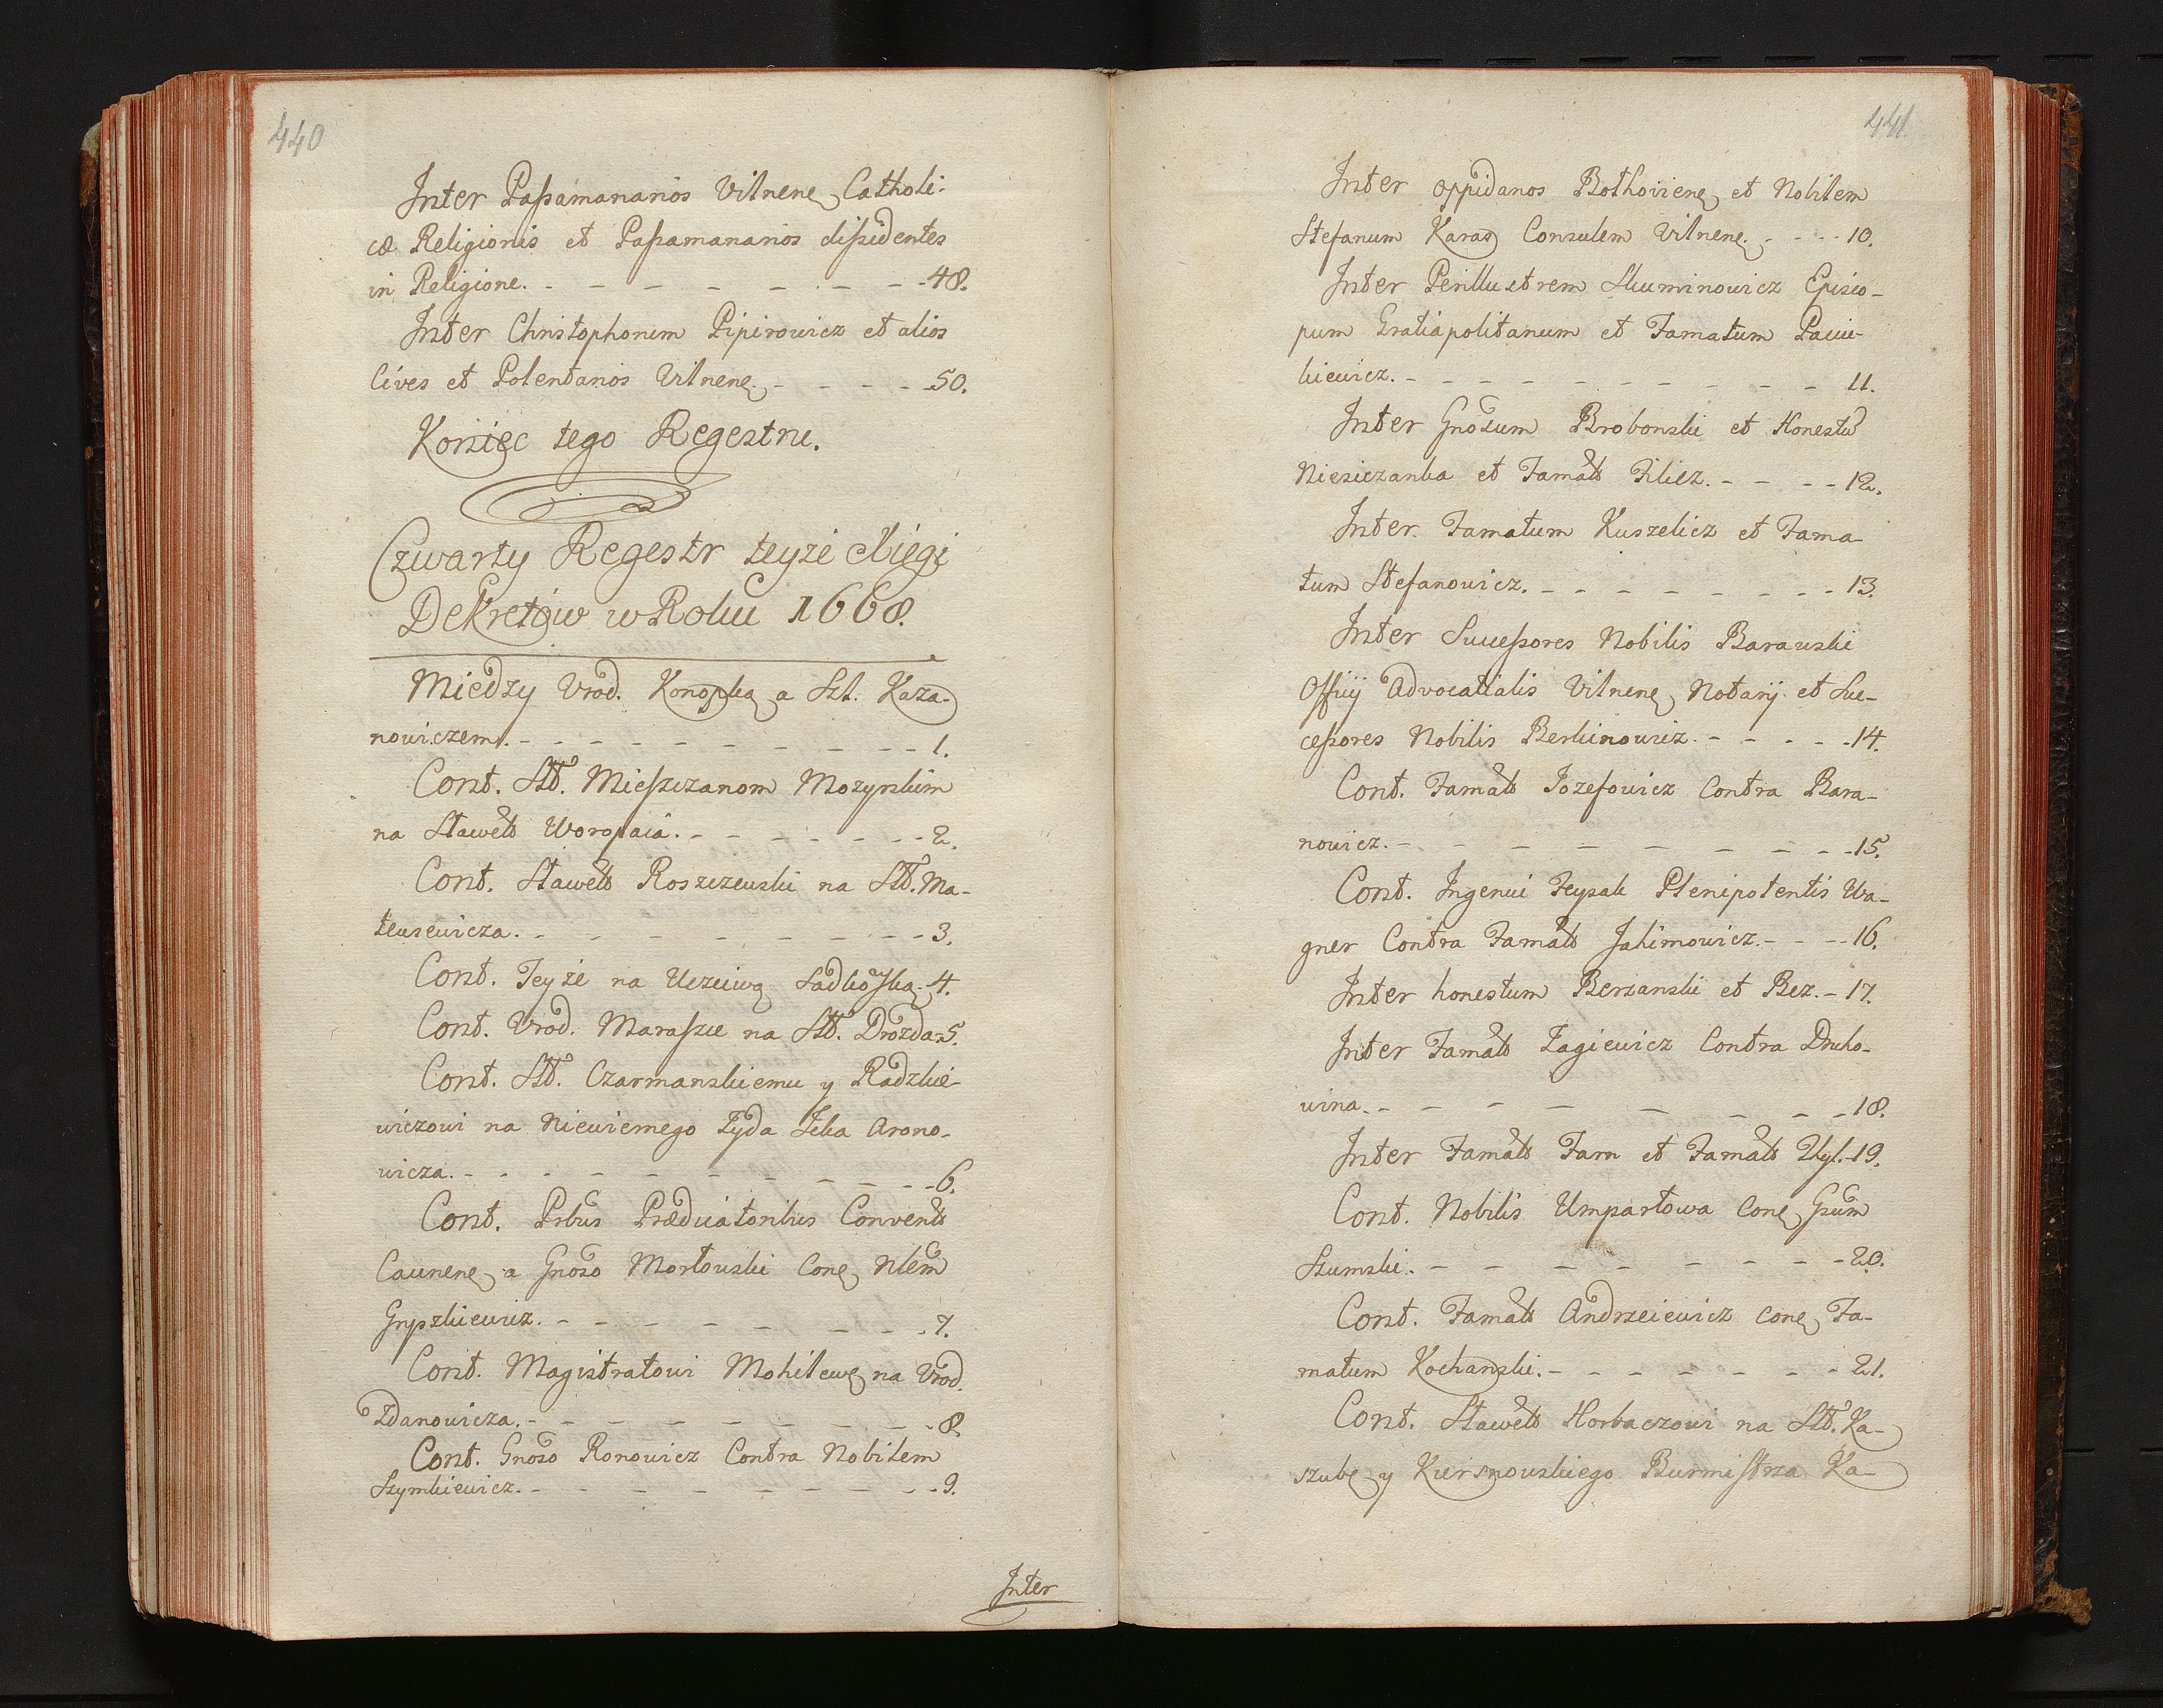 440
Inter Paſsamanarios Vilnenę Catholi-
cæ Religionis et Paſsamanarios diſsidentes
in Religione. - - - - - - - - 48.
Inter Christophorum Pipirowicz et alios
Cives et Polentarios Vilnenę. - - - - - 50.
Koniec tego Regestru.
Czwarty Regestr teyże Xięgi
Dekretów w Roku 1668.
Miedzy Vrod. Konopką a Szl. Kaza-
nowiczem. - - - - - - - - - - 1.
Cont. Sltt. Mieſzczanom Mozyrskim
na Sławett Woropaia. - - - - - - - 2.
Cont. Sławett Roszczewski na Sltt. Ma-
teusewicza. - - - - - - - - - 3.
Cont. Teyże na Uczciwą Sadkoſką. 4.
Cont. Vrod. Maraſzce na Sltt. Drozda. 5.
Cont. Sltt. Czarmanskiemu y Radzkie-
wiczowi na Niewiernego Zyda Zelka Arono-
wicza. - - - - - - - - - - - 6.
Cont. Prbus Prædicatoribus Conventt
Caunenę a Gnoso Mortowski Conę Nlem
Gryszkiewicz. - - - - - - - - - 7.
Cont. Magistratowi Mohilewę na Vrod.
Zdanowicza. - - - - - - - - - 8.
Cont. Gnoso Ronowicz Contra Nobilem
Szymkiewicz. - - - - - - - - - 9.
Inter
441.
Inter Oppidanos Bothovienę et Nobilem
Stefanum Karaś Consulem Vilnenę. - - - - 10.
Inter Perillustrem Słuminowicz Episco-
pum Gratiapolitanum et Famatum Pacu-
kiewicz. - - - - - - - - - - 11.
Inter Gnosum Brobonski et Honestu
Niesiczanka et Famatt Filicz. - - - - 12.
Inter Famatum Kuszelicz et Fama-
tum Stefanowicz. - - - - - - - - 13.
Inter Succeſsores Nobilis Barauski
Officij Advocatialis Vilnenę Notarij et Suc-
ceſsores Nobilis Berkinowicz. - - - - - 14.
Cont. Famatt Jozefowicz Contra Bara-
nowicz. - - - - - - - - - 15.
Cont. Ingenui Feysak Plenipotentis Wa-
gner Contra Famatt Jahimowicz. - - - 16.
Inter honestum Berzanski et Bez. - 17.
Inter Famatt Zagiewicz Contra Druho-
wina. - - - - - - - - 18.
Inter Famatt Farn et Famatt Uyl. - 19.
Cont. Nobilis Umpartowa Conę Gsum
Szumski. - - - - - - - - - 20.
Cont. Famatt Andrzeiewicz conę Fa-
matum Kochanski. - - - - - - - 21.
Cont. Sławett Horbaczowi na Sltt. Ka-
szubę y Kiersnowskiego Burmiſtrza Ka-